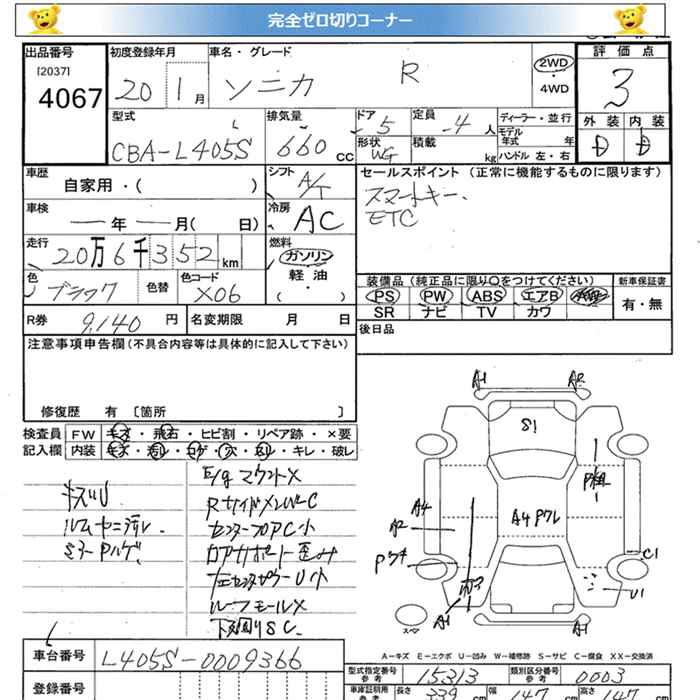 完全ゼロ切りコーナー
出品番号 初度登録年月 車名・グレード 評価点
[2037]
4067 20 1月 ソニカ R 2WD・4WD 3
型式 排気量 ドア 定員 ディーラー・並行 外装 内装
CBA-L405S 660cc 5 4人 モデル年式 年 D D
形状 WG 積載 kg ハンドル 左・右
車歴 自家用・( ) シフト A/T セールスポイント (正常に機能するものに限ります)
スマートキー.
ETC
車検 年 月( 日) 冷房 AC
走行 20万6千352km 燃料 ガソリン
軽油
・( )
色 ブラック 色替 色コード X06
装備品(純正品に限り○をつけてください) 新車保証書
PS PW ABS エアB 有・無
SR ナビ TV カワ
R券 9,140円 名変期限 月 日 後日品
注意事項申告欄(不具合内容等は具体的に記入して下さい)
修復歴 有 〔箇所 〕
検査員 FW キズ・飛石・ヒビ割・リペア跡・×要
記入欄 内装 キズ・汚レ・コゲ・穴・スレ・キレ・破レ
キズU
ルームヤニ汚レ
ミラーPハゲ
E/gマウントX
RサイドメンバーC
センターフロアC小
コアサポート歪み
左センターピラーU小
ルーフモールX
下廻りSC
A1 A2
S1
A4
A2
A4 Pクレ
C1
U1
A1
A1
スペア
A-キズ E-エクボ U-凹み W-補修跡 S-サビ C-腐食 XX-交換済
車台番号 L405S-0009366
登録番号
型式指定番号 参考 15313 類別区分番号 参考 0003
車庫証明用 参考 長さ 339cm 幅 147cm 高さ 147cm